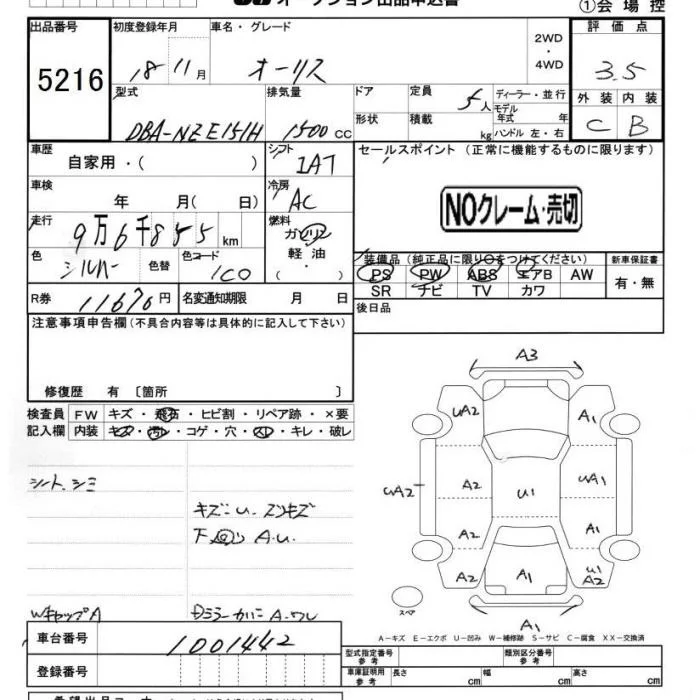 オークション出品申込書
①会場控
出品番号 初度登録年月 車名・グレード 2WD ・ 4WD 評価点
5216 18年11月 オーリス 3.5
型式 排気量 ドア 定員 5人 ディーラー・並行 外装 内装
DBA-NZE151H 1500cc 形状 積載 kg モデル年式 年 ハンドル 左・右 C B
車歴 自家用・( ) シフト IAT セールスポイント (正常に機能するものに限ります)
車検 年 月( 日) 冷房 AC
NOクレーム・売切
走行 9万6千855km 燃料 ガソリン
色 シルバー 色替 色コード 1C0 軽油・( )
装備品 (純正品に限り○をつけてください) 新車保証書
PS PW ABS エアB AW 有・無
SR ナビ TV カワ
R券 11670円 名変通知期限 月 日 後日品
注意事項申告欄(不具合内容等は具体的に記入して下さい)
修復歴 有 〔箇所 〕
検査員 FW キズ・飛石・ヒビ割・リペア跡・×要
記入欄 内装 キズ・汚レ・コゲ・穴・スレ・キレ・破レ
シート、シミ
キズ U
下回り A.U
WキャップA
ミラーカバー A・ワレ
A3
UA2 A1
A2 UA1
UA2 U1
A2 A1
A2 A1 U1 A2
スペア
A1
A-キズ E-エクボ U-凹み W-補修跡 S-サビ C-腐食 XX-交換済
車台番号 1001442
登録番号
型式指定番号 参考 類別区分番号 参考
車庫証明用 参考 長さ cm 幅 cm 高さ cm
希望出品コーナー